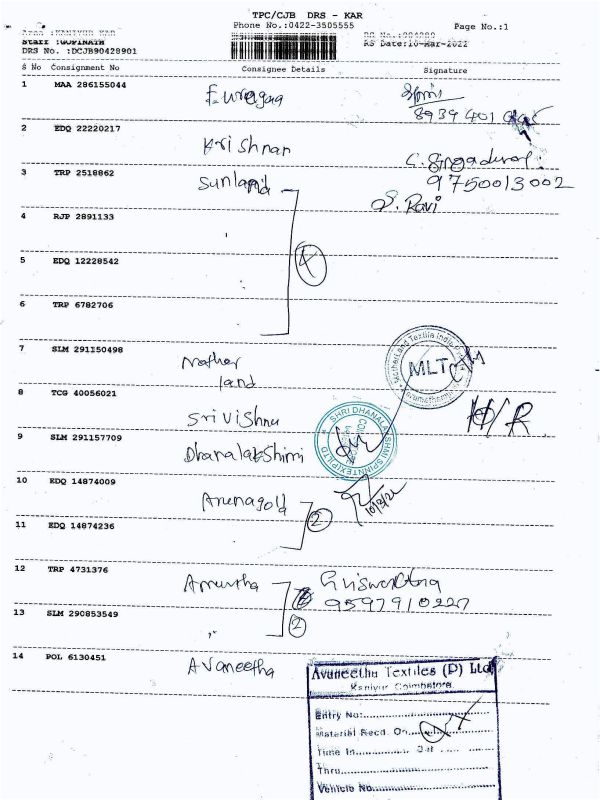 TPC/CJB DRS - KAR
Phone No.:0422-3505555
Page No.:1
Staff :GOPINATH
DRS No. :DCJB90428901
RS Date:10-Mar-2022
S No Consignment No Consignee Details Signature
1 MAA 286155044
8939 401
2 EDQ 22220217 Krishnan
3 TRP 2518862 Sunland
9750013002
S. Ravi
4 RJP 2891133
5 EDQ 12228542 4
6 TRP 6782706
7 SLM 291150498 Mother
land
MLT
8 TCG 40056021 Sri Vishnu
SHRI DHANALAKSHMI SPINTEX(P)LTD
9 SLM 291157709 Dhanalakshimi
10 EDQ 14874009 Arunagold 2
10/3/22
11 EDQ 14874236
12 TRP 4731376 Amrutha
9597910227
13 SLM 290853549 2
14 POL 6130451 Avaneetha
Avaneetha Textiles (P) Ltd
Kaniyur Coimbatore
Entry No:
Material Recd. On
Time In Out
Thru
Vehicle No